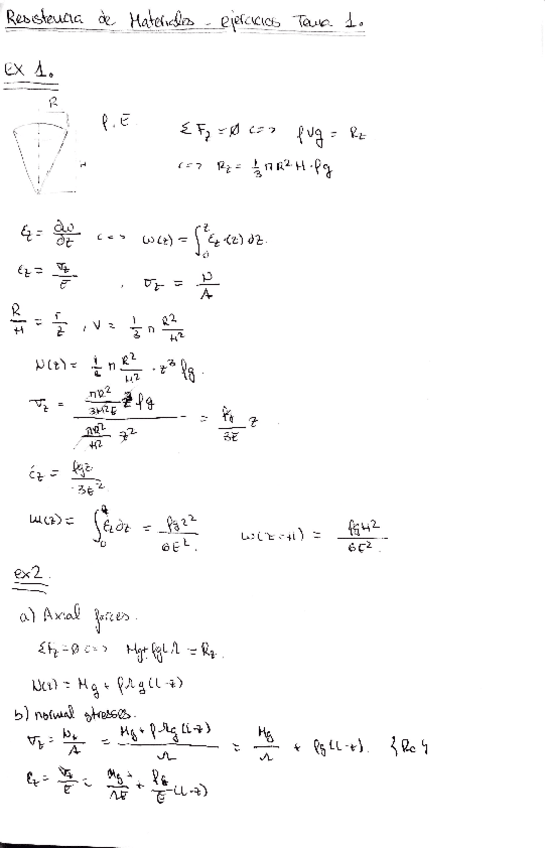 Resistencia de Materiales - Ejercicios Tema 1.
EX 1.
R
ρ, E
ΣF_z = Ø <=> ρVg = R_z
<=> R_z = 1/3 π R² H · ρg
ε_z = ∂w/∂z <=> w(z) = ∫₀^z ε_z(z) dz.
ε_z = σ_z/E , σ_z = N/A
R/H = r/z , V = 1/3 π R²/H²
N(z) = 1/3 π R²/H² · z³ ρg.
σ_z = (πR²/3H²E z³ ρg) / (πR²/H² z²) = ρg/3E z
ε_z = ρgz/3E²
w(z) = ∫₀ ε_z dz = ρgz²/6E². w(z=H) = ρgH²/6E².
ex2.
a) Axial forces.
ΣF_z = Ø <=> Mg + ρgLΩ = R_z.
N(z) = Mg + ρΩg(L-z)
b) normal stresses.
σ_z = N_z/A = (Mg + ρΩg(L-z))/Ω = Mg/Ω + ρg(L-z). {Pa}
ε_z = σ_z/E = Mg/ΩE + ρg/E (L-z)